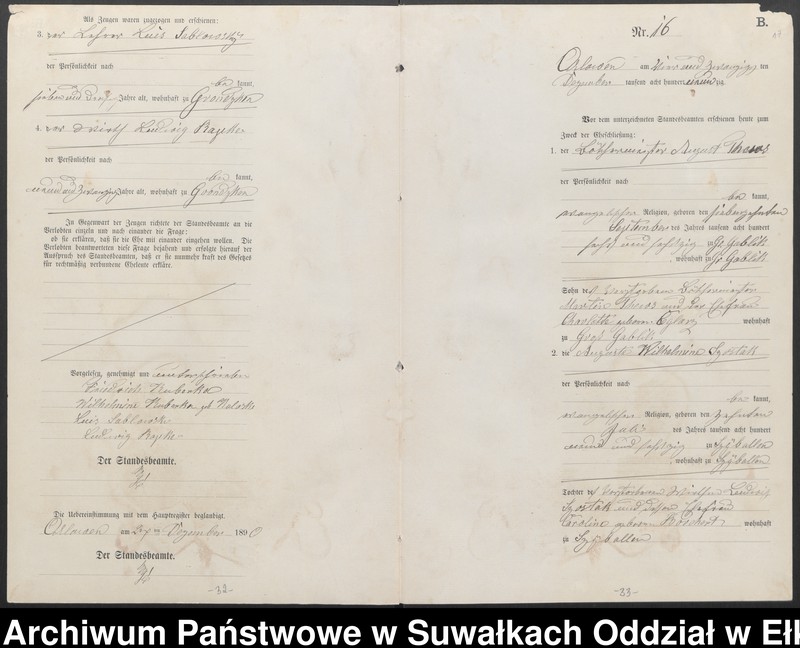 Als Zeugen waren zugezogen und erschienen:
3. der Lehrer Luis Sablowsky
der Persönlichkeit nach
be kannt,
sieben und Jahre alt, wohnhaft zu Grondzken
4. der Wirth Ludwig
der Persönlichkeit nach
be kannt,
neun und zwanzig Jahre alt, wohnhaft zu Grondzken
In Gegenwart der Zeugen richtete der Standesbeamte an die
Verlobten einzeln und nach einander die Frage:
ob sie erklären, daß sie die Ehe mit einander eingehen wollen. Die
Verlobten beantworteten diese Frage bejahend und erfolgte hierauf der
Ausspruch des Standesbeamten, daß er sie nunmehr kraft des Gesetzes
für rechtmäßig verbundene Eheleute erkläre.
Vorgelesen, genehmigt und unterschrieben
Friedrich
Wilhelmine geb.
Luis Sablowsky
Ludwig
Der Standesbeamte.
Die Uebereinstimmung mit dem Hauptregister beglaubigt.
am Dezember 1890
Der Standesbeamte.
-32-
B.
Nr. 16
am vier und zwanzig ten
Dezember tausend acht hundert neun zig.
Vor dem unterzeichneten Standesbeamten erschienen heute zum
Zweck der Eheschließung:
1. der August
der Persönlichkeit nach
be kannt,
evangelischer Religion, geboren den siebenzehnten
September des Jahres tausend acht hundert
sechs und sechszig zu Gr. Gablik
, wohnhaft zu Gr. Gablik
Sohn des verstorbenen
Martin und der Ehefrau
Charlotte geborenen wohnhaft
zu Groß Gablik
2. die Auguste Wilhelmine Szostak
der Persönlichkeit nach
be kannt,
evangelischer Religion, geboren den zehnten
Juli des Jahres tausend acht hundert
neun und sechszig zu Szyballen
, wohnhaft zu Szyballen
Tochter des verstorbenen Wirthen Ludwig
Szostak und dessen Ehefrau
Caroline geborenen wohnhaft
zu Szyballen
-33-
Archiwum Państwowe w Suwałkach Oddział w Ełk